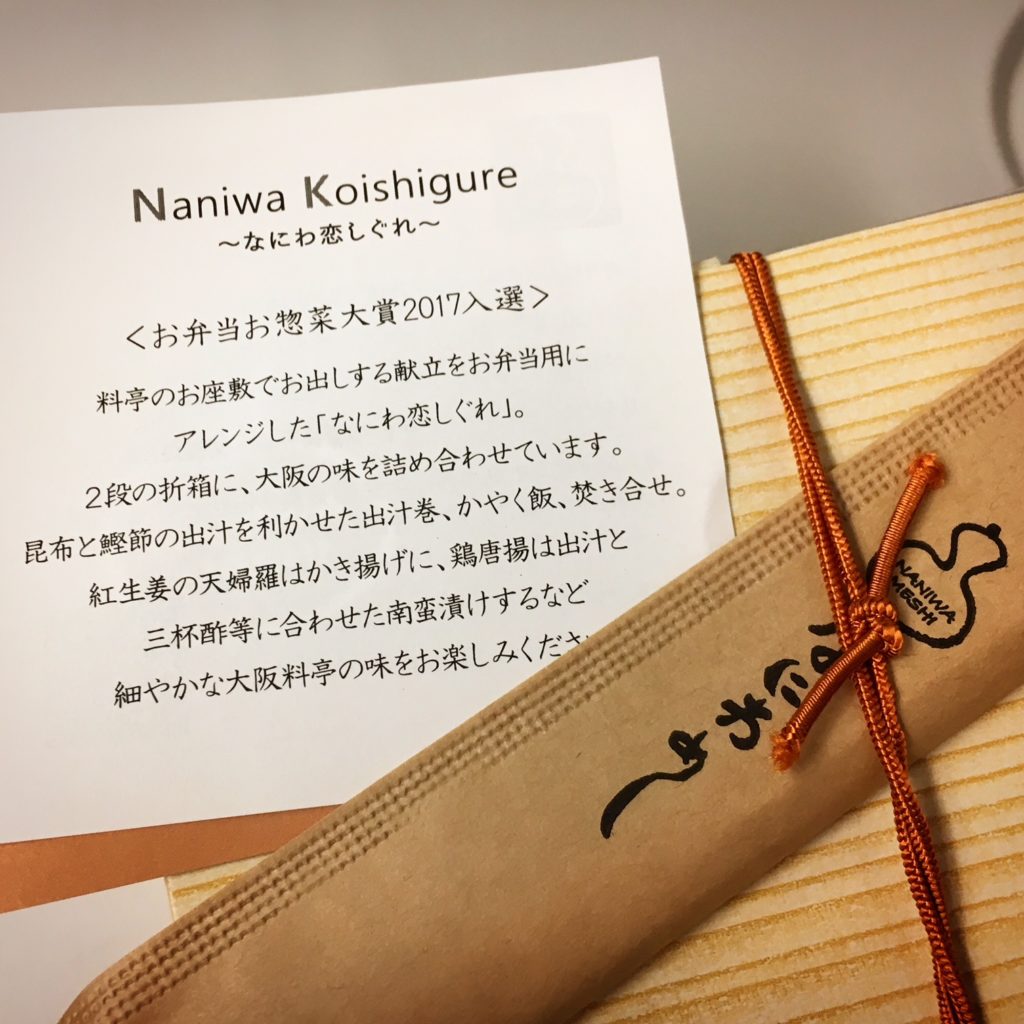 Naniwa Koishigure
～なにわ恋しぐれ～
＜お弁当お惣菜大賞2017入選＞
料亭のお座敷でお出しする献立をお弁当用に
アレンジした「なにわ恋しぐれ」。
2段の折箱に、大阪の味を詰め合わせています。
昆布と鰹節の出汁を利かせた出汁巻、かやく飯、焚き合せ。
紅生姜の天婦羅はかき揚げに、鶏唐揚は出汁と
三杯酢等に合わせた南蛮漬けするなど
細やかな大阪料亭の味をお楽しみくださ
NANIWA
MESHI
なにわめし